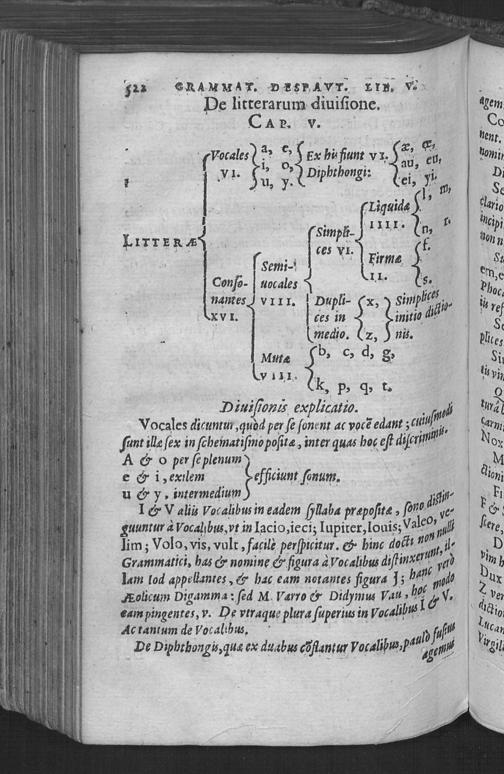 522 GRAMMAT. DESPAVT. LIB. V.
De litterarum diuisione.
CAP. V.
LITTERÆ
Vocales VI.
a, e,
i, o,
u, y.
Ex his fiunt VI.
Diphthongi:
æ, œ,
au, eu,
ei, yi.
Conso-
nantes
XVI.
Semi-
uocales
VIII.
Simpli-
ces VI.
Liquidæ
IIII.
l, m,
n, r.
Firmæ
II.
f.
s.
Dupli-
ces in
medio.
x,
z,
Simplices
initio dictio-
nis.
Mutæ
VIII.
b, c, d, g,
k, p, q, t.
Diuisionis explicatio.
Vocales dicuntur, quòd per se sonent ac vocē edant; cuiusmodi
sunt illæ sex in schematismo positæ, inter quas hoc est discriminis.
A & o per se plenum
e & i, exilem
u & y, intermedium
efficiunt sonum.
I & V aliis Vocalibus in eadem syllaba præpositæ, sono distin-
guuntur à Vocalibus, vt in Iacio, ieci; Iupiter, Iouis; Valeo, ve-
lim; Volo, vis, vult, facilè perspicitur. & hinc docti non nulli
Grammatici, has & nomine & figura à Vocalibus distinxerunt, il-
lam Iod appellantes, & hac eam notantes figura J; hanc verò
Æolicum Digamma: sed M. Varro & Didymus Vau, hoc modo
eam pingentes, v. De vtraque plura superius in Vocalibus I & V.
Ac tantum de Vocalibus.
De Diphthongis, quæ ex duabus cōstantur Vocalibus, paulò fusius
agemus